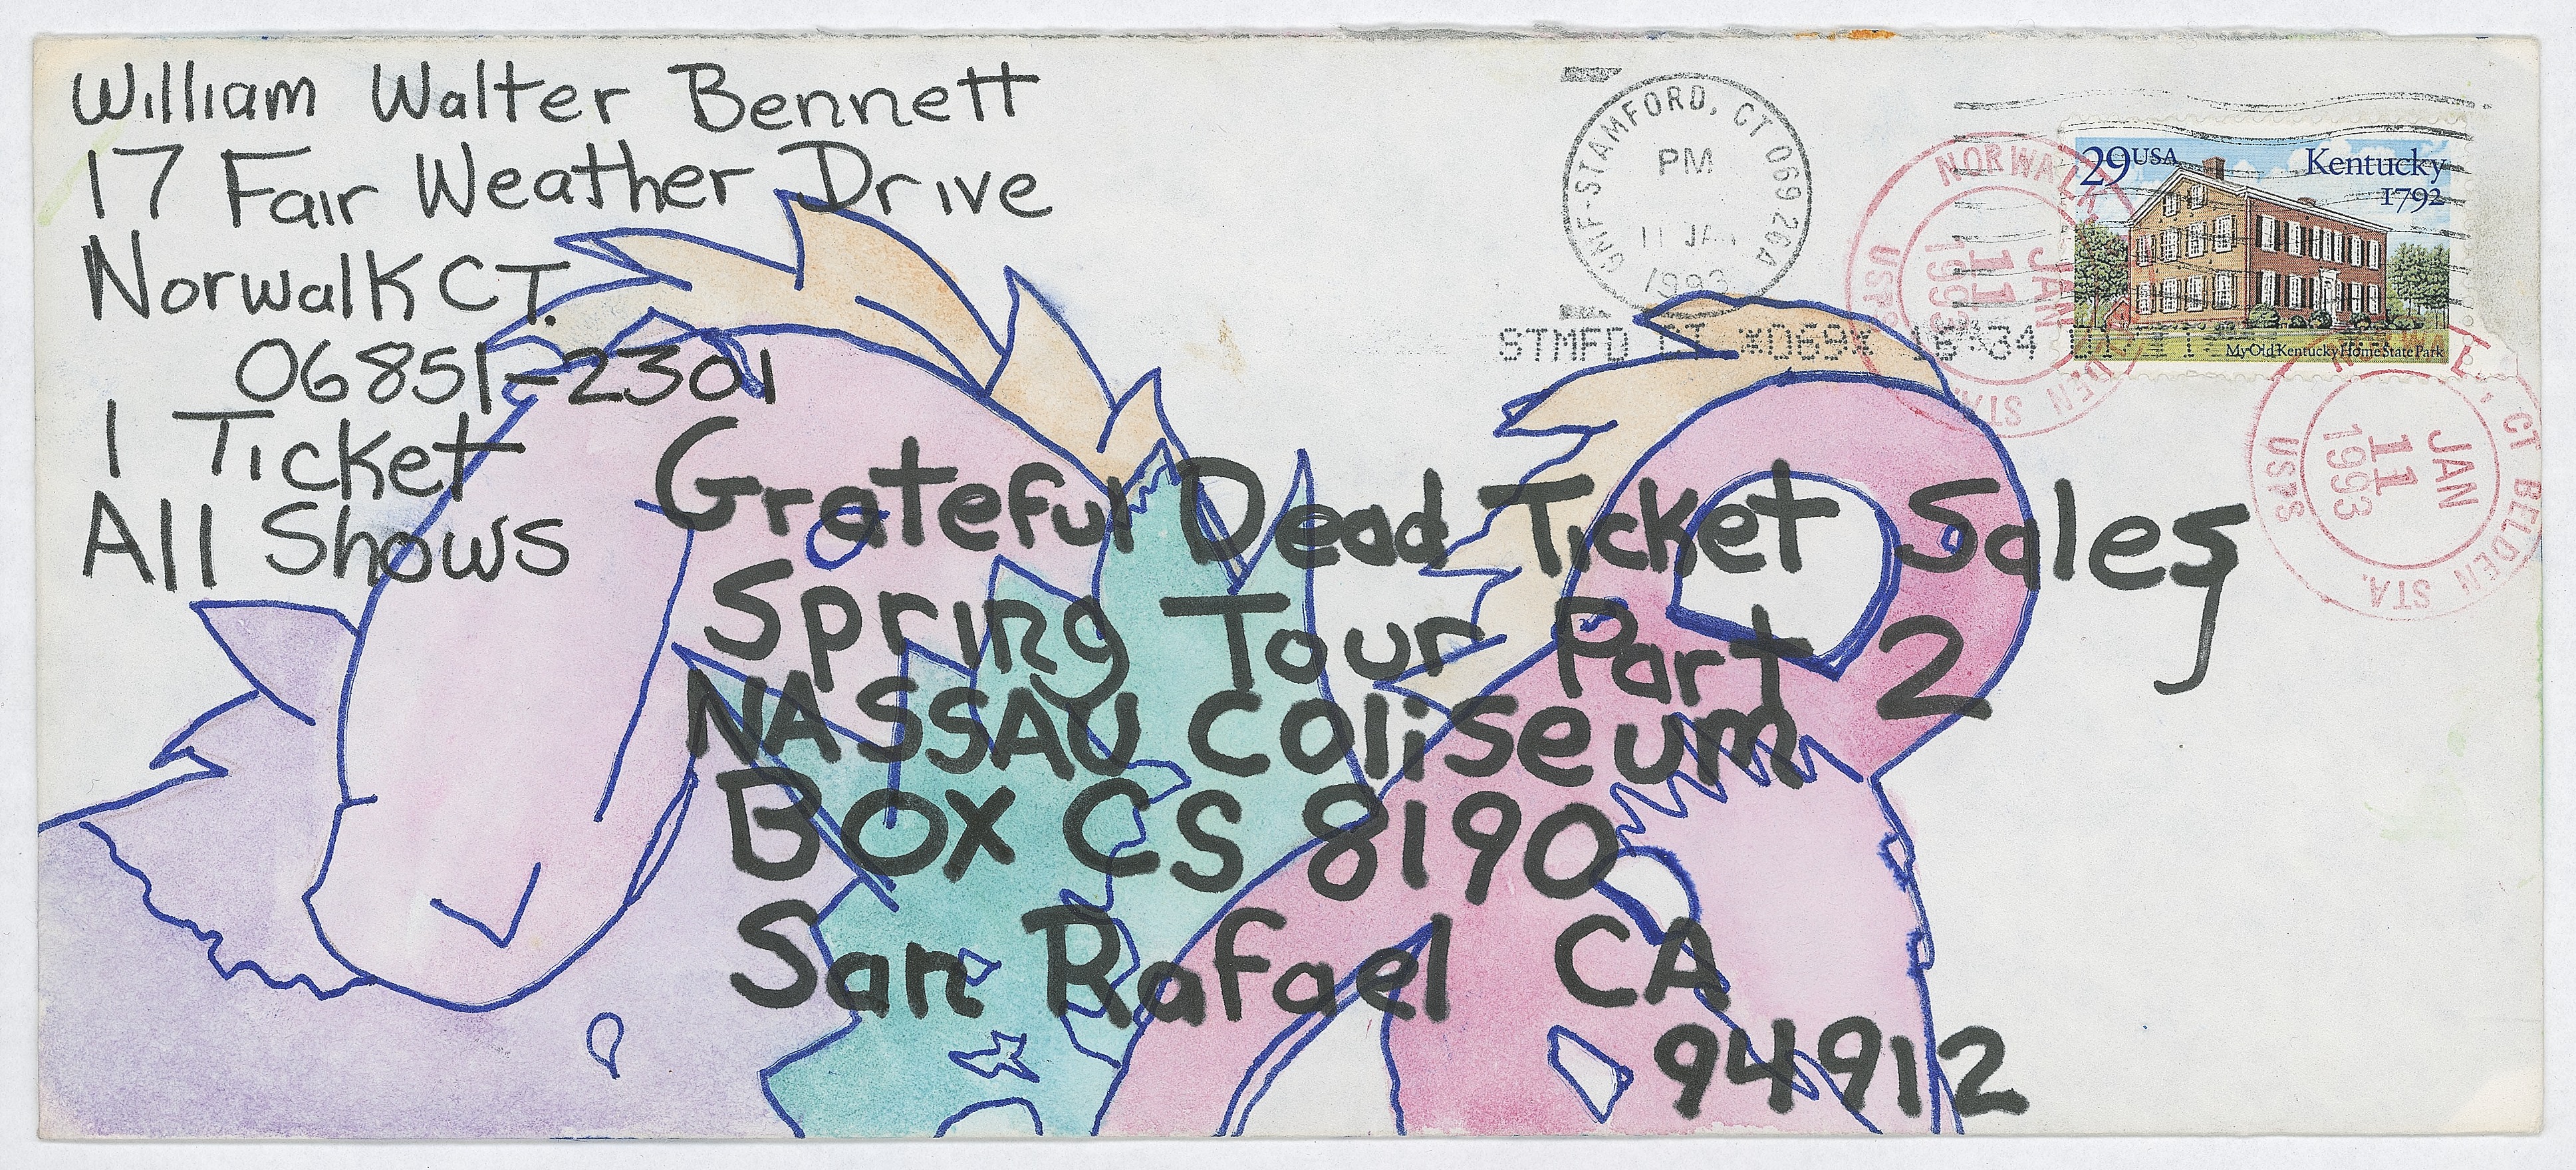 William Walter Bennett
17 Fair Weather Drive
Norwalk CT.
06851-2301
1 Ticket
All Shows
GMF-STAMFORD, CT 069 26A
PM
11 JA
1993
STMFD CT *069* 16:34
NORWALK
BELDEN STA.
USPS
JAN
11
1993
29 USA
Kentucky
1792
My Old Kentucky Home State Park
CT BELDEN STA.
USPS
JAN
11
1993
Grateful Dead Ticket Sales,
Spring Tour Part 2
NASSAU Coliseum
BOX CS 8190
San Rafael CA
94912